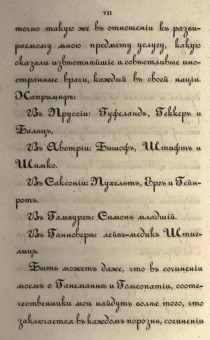 VII
точно такую же въ отношеніи къ разви-
ваемому мною предмету услугу, какую
оказали извѣстнѣйшіе и совѣстливые ино-
странные врачи, каждый въ своей націи.
Напримѣръ:
Въ Пруссіи: Гуфеландъ, Геккеръ и
Бальцъ.
Въ Австріи: Бишофъ, Штифтъ и
Шимко.
Въ Саксоніи: Пухельтъ, Ергъ и Гейн-
ротъ.
Въ Гамбургѣ: Симонъ младшій.
Въ Ганноверѣ: лейбъ-медикъ Штиг-
лицъ.
Быть можетъ даже, что въ сочиненіи
моемъ о Ганеманнѣ и Гомеопатіи, сооте-
чественники мои найдутъ болѣе того, что
заключается въ каждомъ порознь, сочиненіи